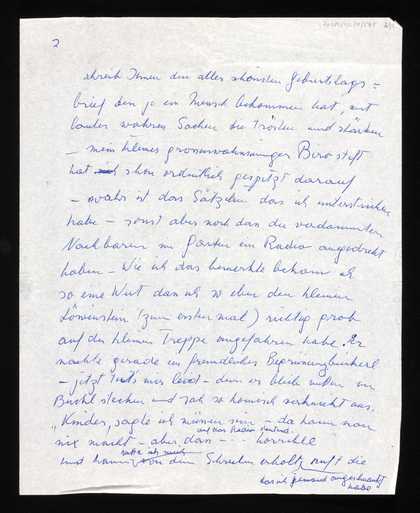 2
schreib Ihnen den aller schönsten Geburtstags=
brief den je ein Mensch bekommen hat, mit
lauter wahren Sachen die Trösten und stärken
– mein kleines grössenwahnsinniger Bürostift
hat schon ordentlich gespitzt darauf
– wahr ist das Sätzchen das ich unterstrichen
habe – sonst aber noch dan die verdammten
Nachbarn im Garten ein Radio angedreht
haben – Wie ich das bemerkte bekam ich
so eine Wut dan ich so eben den kleinen
Löwenstein (zum ersten mal) richtig grob
auf der kleinen Treppe angefahren habe. Er
machte gerade ein freundliches
– jetzt tuts mir leid – denn er blieb mitten im
stecken und sah so komisch aus.
"Kinder, sagte ich müssen sein – da kann man
nix machen – aber das – ... horrible
und das Radio
und kaum von dem Schrecken erholt, ruft die
das ich jemand angeschnauzt
habe